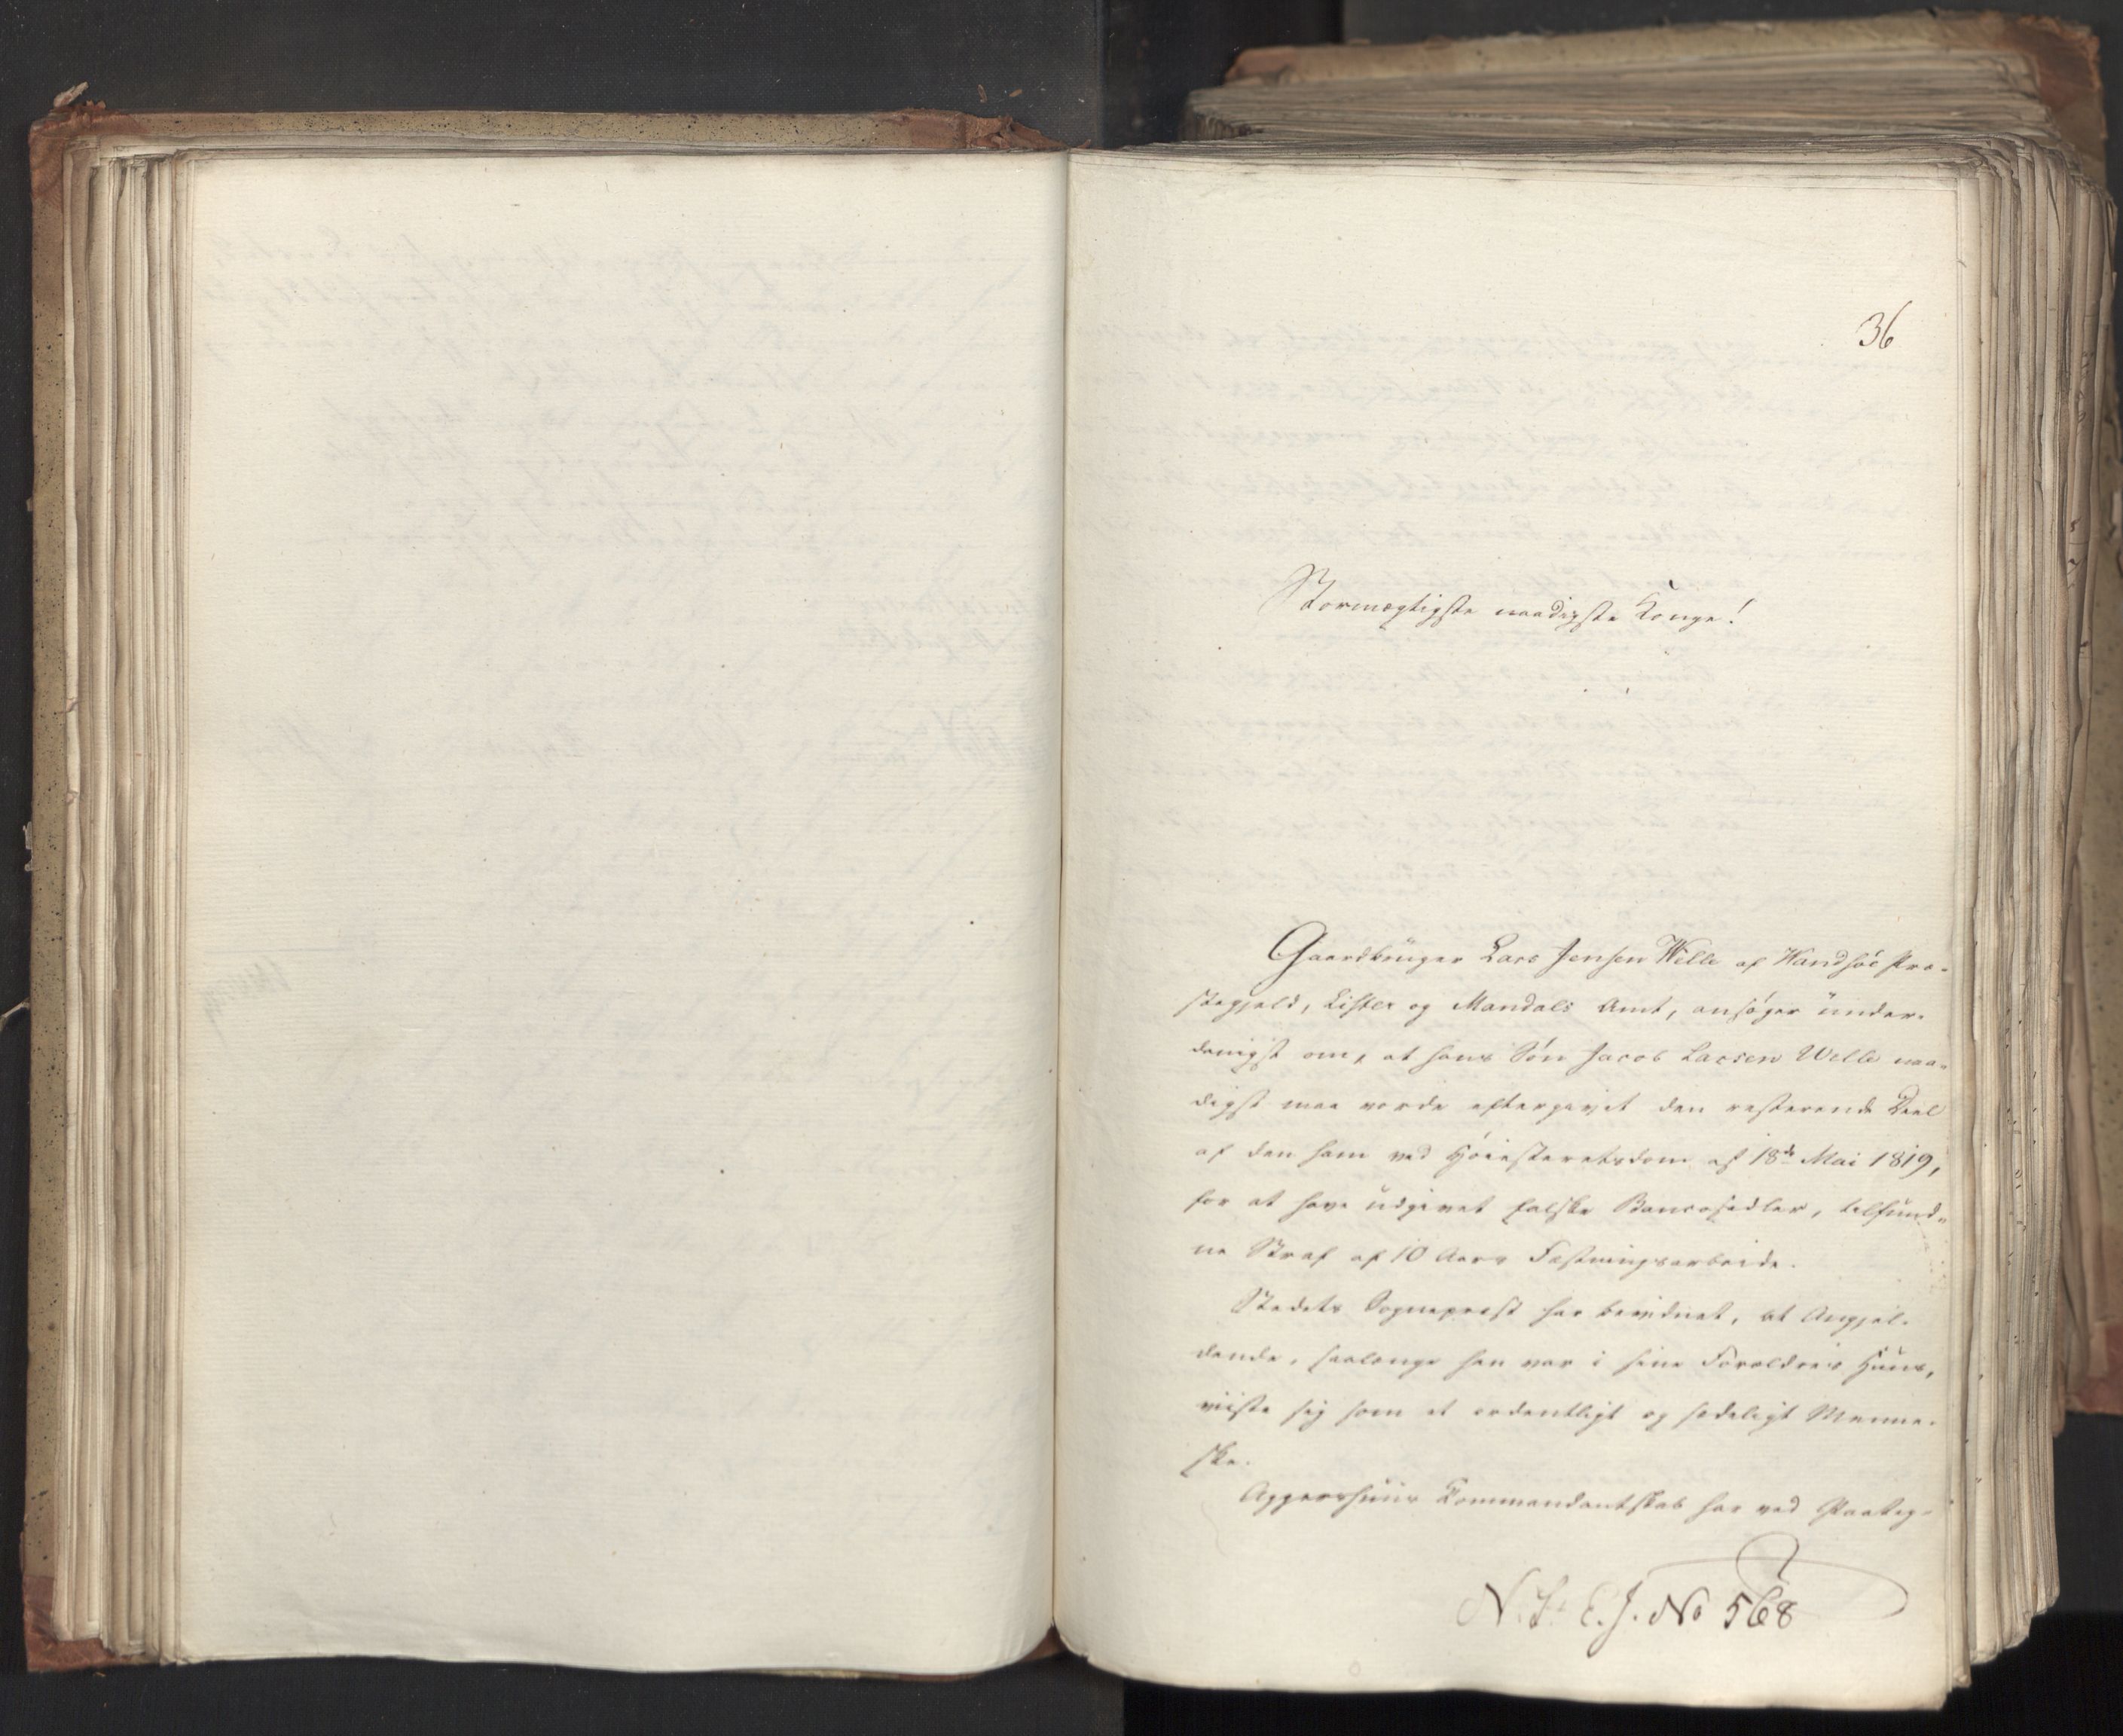 36
Stormægtigste naadigste Konge!
Gaardbruger Lars Jensen Welle af Wandsøe Præ-
stegjeld, Lister og Mandals Amt, ansøger under-
danigst om, at hans Søn Jacob Larsen Welle naa-
digst maa vorde eftergivet den resterende Deel
af den ham ved Høiesteretsdom af 18de Mai 1819,
for at have udgivet falske Bancosedler, tilfund-
ne Straf af 10 Aars Fæstningsarbeide.
Stedets Sognepræst har bevidnet, at Angjel-
dende, saalænge han var i sine Forældres Huus,
viiste sig som et ordentligt og sædeligt Menne-
ske.
Aggershuus Commandantskab har ved Paateg-
N. St. E. J. No 568